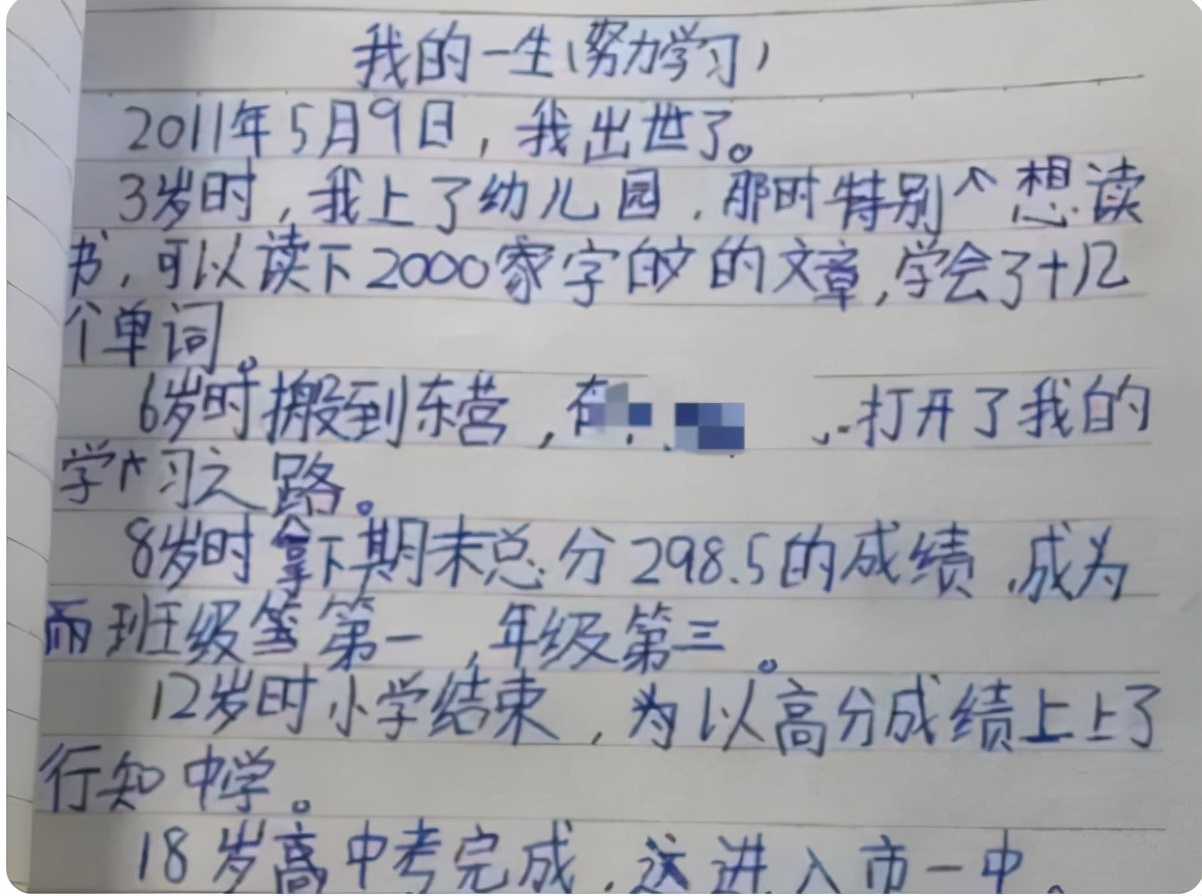 我的一生(努力学习)
2011年5月9日，我出世了。
3岁时，我上了幼儿园，那时特别想读
书，可以读下2000家字的的文章，学会了十几
个单词。
6岁时搬到东营，在 打开了我的
学习之路。
8岁时拿下期末总分298.5的成绩，成为
而班级第一，年级第三。
12岁时小学结束，为以高分成绩上上了
行知中学。
18岁高中考完成，这进入市一中。